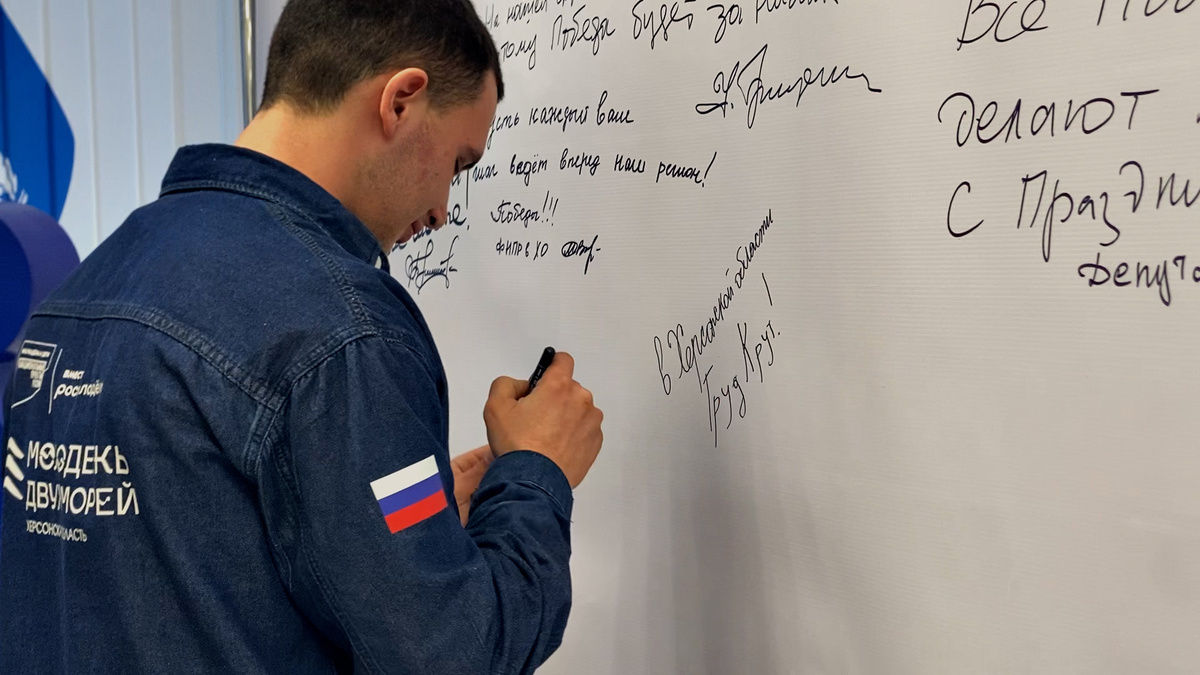 тому Победа будет за нами
каждый ваш
шаг ведёт вперед наш регион!
Победы!!!
ФНПР в ХО
в Херсонской области
Труд Крут!
Все
делают
С Праздни
Депута
Росмолодёж
МОЛОДЕЖЬ
ДВУХ МОРЕЙ
ХЕРСОНСКАЯ ОБЛАСТЬ